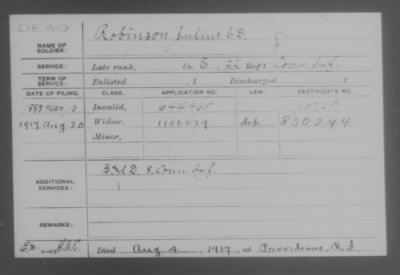 DEAD
NAME OF SOLDIER: Robinson, Julius C.D.
SERVICE: Late rank, Co. E, 22 Reg't Conn. Inf.
TERM OF SERVICE: Enlisted , 1 Discharged , 1
DATE OF FILING. CLASS. APPLICATION NO. LAW. CERTIFICATE NO.
1889 Invalid,
1917 Aug 20 Widow, 1106079 850244
Minor,
ADDITIONAL SERVICES: 8 Conn Inf.
REMARKS:
Died Aug 4, 1917, at Providence, R.I.